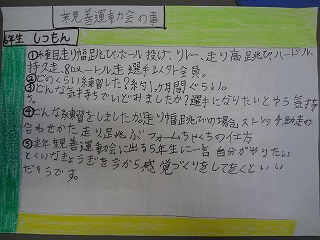 親善運動会の事
6年生 しつもん
①種目走り幅跳びボール投げ、リレー、走り高跳びハードル
持久走、80メートル走 選手以外全員。
②どのくらい練習した?約1ヶ月間ぐらい。
③どんな気持ちでいどおましたか?選手になりたいとゆう気持
ち。
④どんな練習をしましたか走り幅跳びの場合、ストレッチ助走の
合わせかた走り足跳ぶフォームちゃくちの仕方
⑤来年親善運動会に出る5年生に一言 自分がやりたい
とくいなきょうぎを今から感覚づくりをしてをくといい
だそうです。